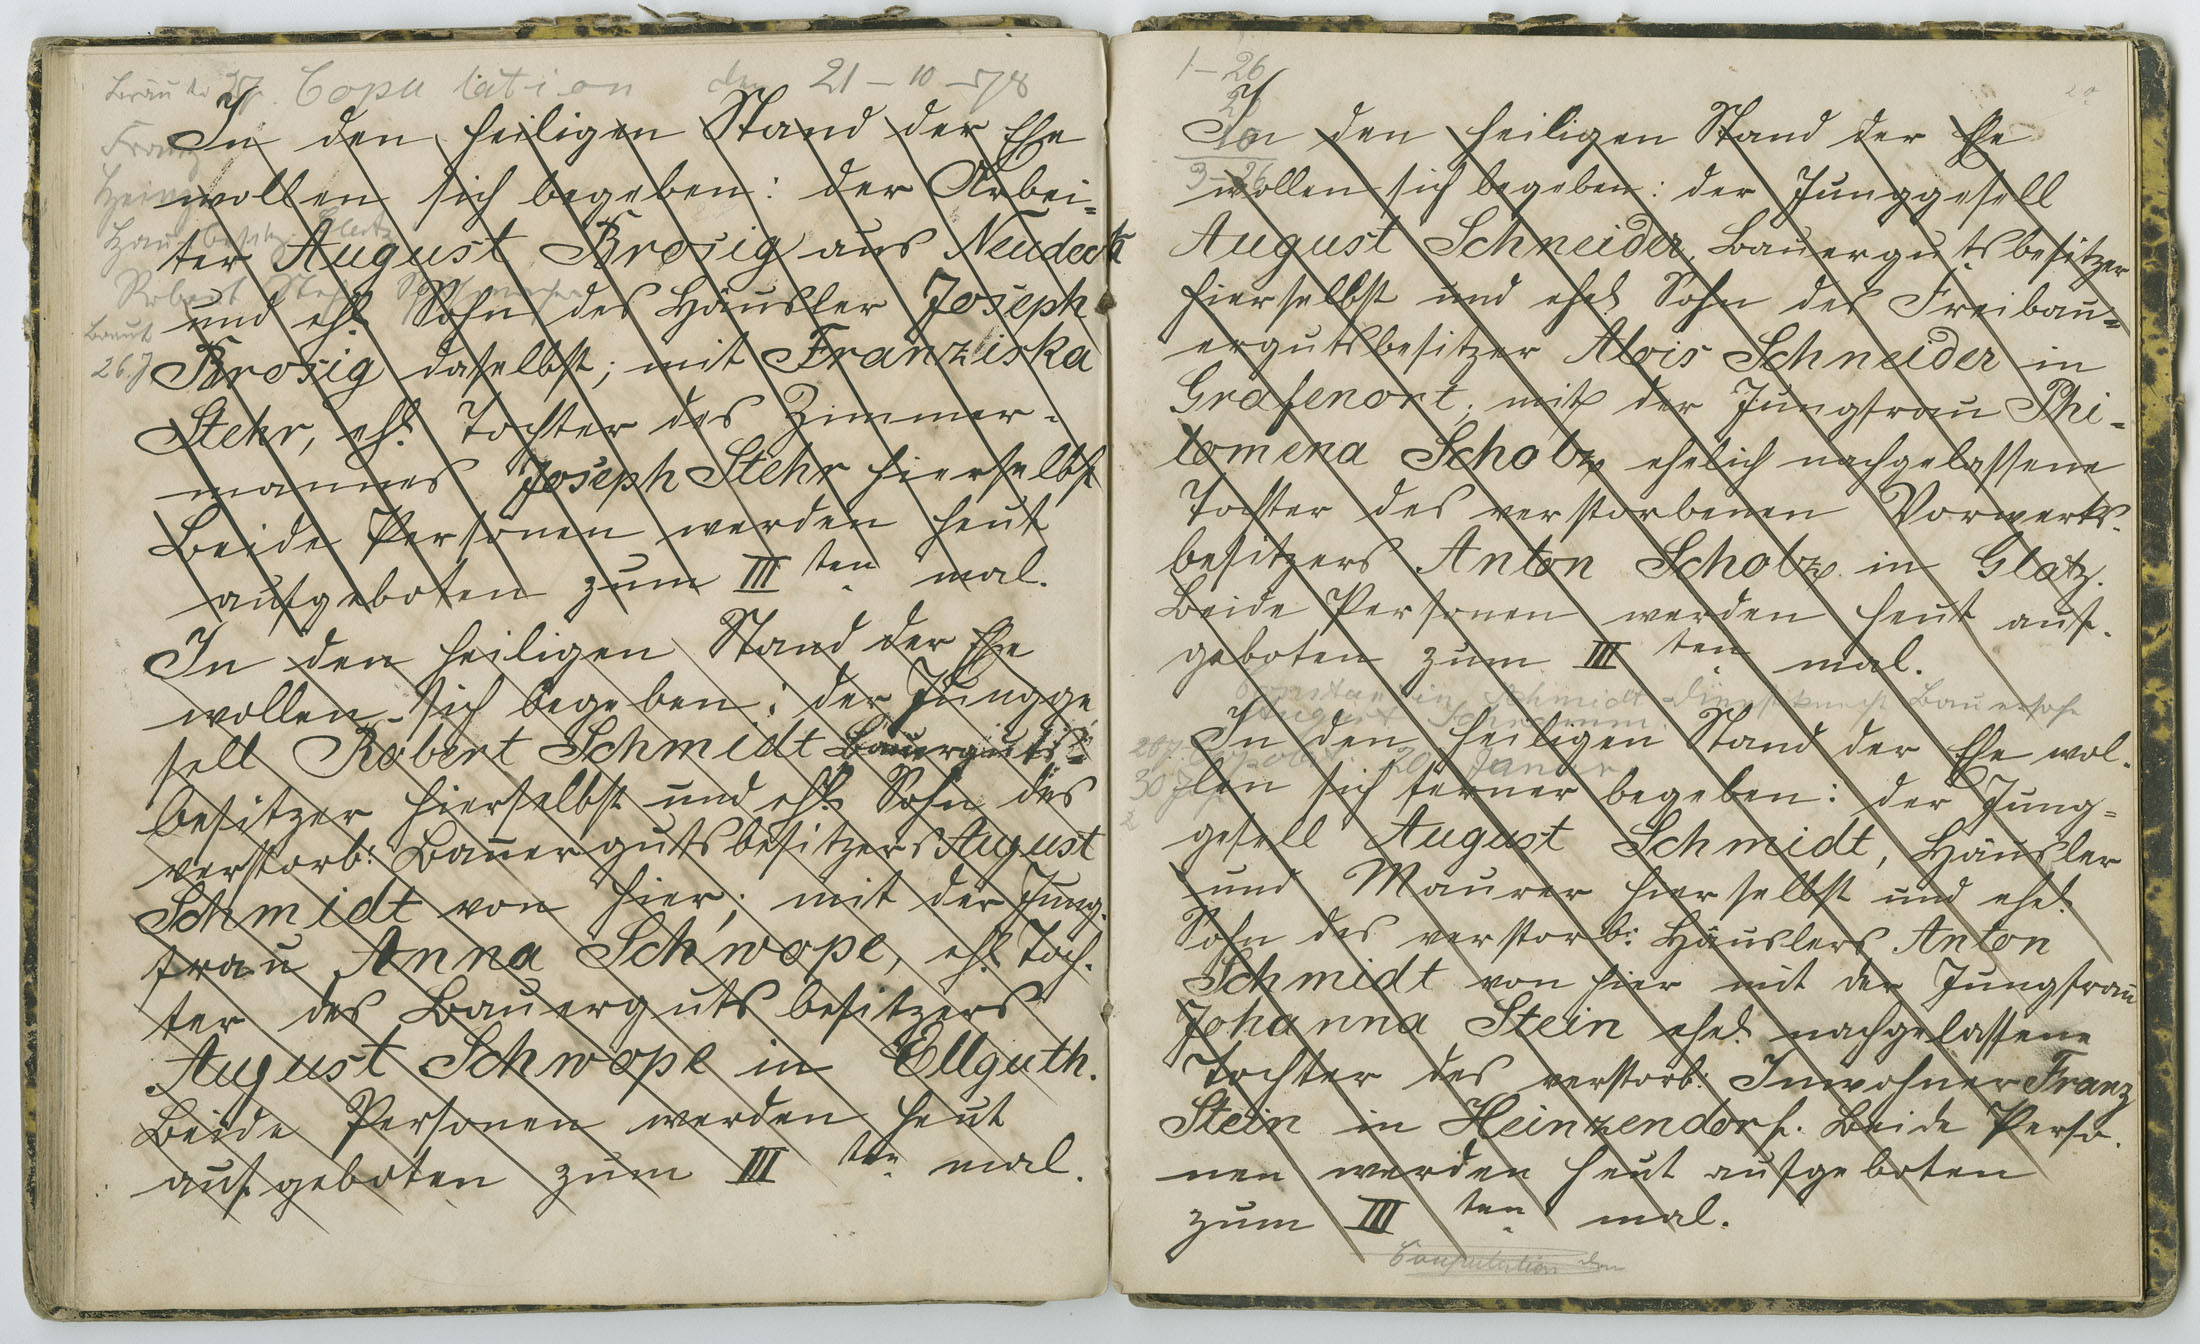 Copulation den 21-10-78
In den heiligen Stand der Ehe
wollen sich begeben: der Arbei=
ter August Brosig aus Neudeck
und ehl. Sohn des Häusler Joseph
Brosig daselbst; mit Franziska
Stehr, ehl. Tochter des Zimmer-
mannes Joseph Stehr hierselbst
Beide Personen werden heut
aufgeboten zum III ten mal.
In den heiligen Stand der Ehe
wollen sich begeben: der Jungge
sell Robert Schmidt Bauerguts=
besitzer hierselbst und ehl. Sohn des
verstorb: Bauergutsbesitzers August
Schmidt von hier; mit der Jung-
frau Anna Schwope, ehl. Toch-
ter des Bauergutsbesitzers
August Schwope in Ellguth.
Beide Personen werden heut
aufgeboten zum III ten mal.
Franz
Robert Stehr
Braut
26. J
1-26
In den heiligen Stand der Ehe
wollen sich begeben: der Junggesell
August Schneider, Bauergutsbesitzer
hierselbst und ehel. Sohn des Freibau=
ergutsbesitzer Alois Schneider in
Grafenort; mit der Jungfrau Phi-
lomena Scholz ehelich nachgelassene
Tochter des verstorbenen Vorwerks-
besitzers Anton Scholz in Glatz.
Beide Personen werden heut auf-
geboten zum III ten mal.
Constantin Schmidt Dienstknecht Bauersohn
August
20 Januar
In den heiligen Stand der Ehe wol-
len sich ferner begeben: der Jung=
gesell August Schmidt, Häusler
und Maurer hierselbst und ehel.
Sohn des verstorb: Häuslers Anton
Schmidt von hier mit der Jungfrau
Johanna Stein ehel. nachgelassene
Tochter des verstorb: Inwohner Franz
Stein in Heinzendorf. Beide Perso-
nen werden heut aufgeboten
zum III ten mal.
Copulation den